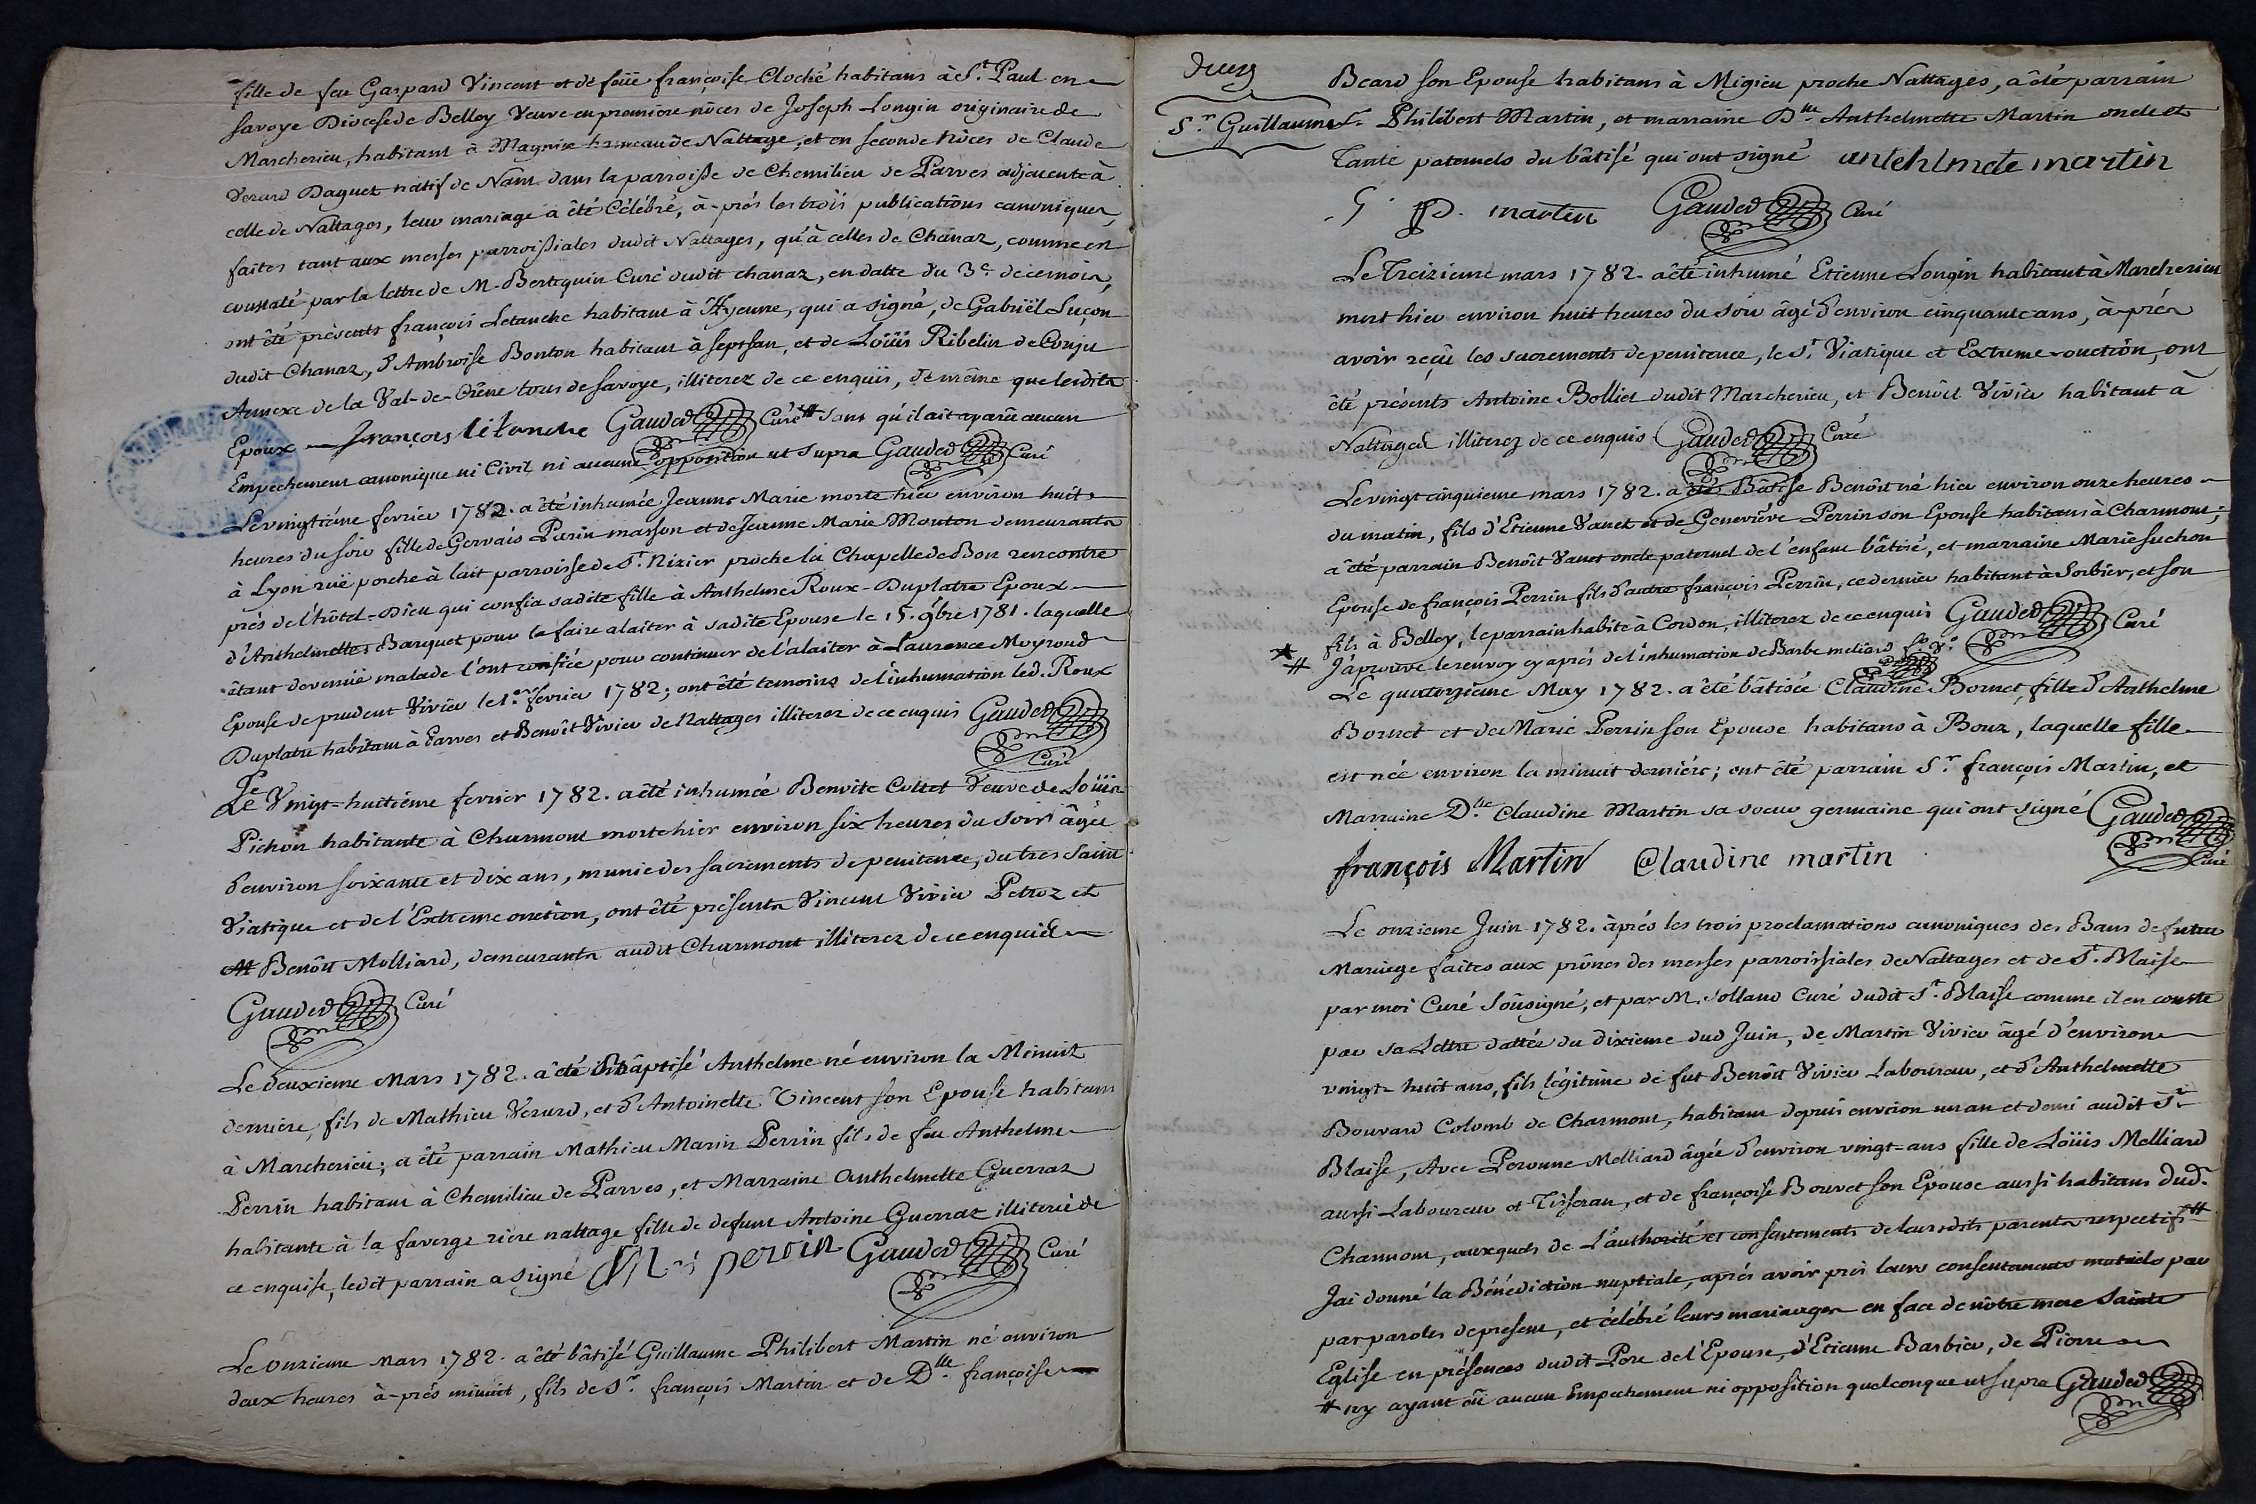 fille de feu Gaspard Vincent et de feüe françoise Cloché habitans à St. Paul en
Savoye Diocese de Belley Veuve en premiere nôces de Joseph Longin originaire de
Marcherieu, habitant à Magnin hameau de Nattage, et en seconde nôces de Claude
Verard Daguet natif de Nant dans la parroisse de Chemilieu de Parves adjacente à
celle de Nattages, leur mariage a été Célébré, à-prés les trois publications canoniques,
faites tant aux messes parroissiales dudit Nattages, qu'à celles de Chanaz, comme en
constaté par la lettre de M. Bertequin Curé dudit chanaz, en datte du 3e. de ce mois,
ont été présents françois Letanche habitant à Hyenne, qui a signé, de Gabriël Luçon
dudit Chanaz, d'Ambroise Bonton habitant à Septsan, et de Loüis Ribelin de Conju
Annexe de la Val-de-Crêne tous de savoye, illiterez de ce enquis, de même que lesdits
Epoux françois letanche Gauded Curé # sans qu'il ait aparû aucun
Empechement canonique ni Civil ni aucune opposition ut supra Gauded Curé
Le vingtiéme fevrier 1782. a été inhumée Jeanne Marie morte hier environ huit
heures du soir fille de Gervais Parin masson et de Jeanne Marie Mouton demeurants
à Lyon ruë porche à lait parroisse de St. Nizier proche la Chapelle de Bon rencontre
prés de l'hôtel-Dieu qui confia sadite fille à Anthelme Roux-Duplatre Epoux
d'Anthelmette Barquet pour la faire alaiter à sadite Epouse le 15. 9bre 1781. laquelle
êtant devenuë malade l'ont confiée pour continuer de l'alaiter à Laurence Moyroud
Epouse de prudent Vivier le 1er. fevrier 1782; ont été temoins de l'inhumation led. Roux
Duplatre habitant à Parves et Benoît Vivier de Nattages illiterez de ce enquis Gauded
Curé
Le Vingt-huitiéme fevrier 1782. a été inhumée Benoite Cottet Veuve de Loüis
Pichon habitante à Charmont morte hier environ six heures du soir âgée
d'environ soixante et dix ans, munie des sacrements de penitence, du tres Saint
Viatique et de l'Extreme onction, ont été présents Vincent Vivier Petroz et
Benoît Molliard, demeurants audit Charmont illiterez de ce enquis
Gauded Curé
Le deuxieme Mars 1782. a été Bâptisé Anthelme né environ la Minuit
derniere, fils de Mathieu Verard, et d'Antoinette Vincent son Epouse habitans
à Marcherieu; a été parrain Mathieu Marin Perrin fils de feu Anthelme
Perrin habitant à Chemilieu de Parves, et Marraine Anthelmette Guerraz
habitante à la faverge riere nattage fille de defunt Antoine Guerraz illiteré de
ce enquise, ledit parrain a signé perrin Gauded Curé
Le Onzieme Mars 1782. a été bâtisé Guillaume Philibert Martin né environ
deux heures à-prés minuit, fils de Sr. françois Martin et de Dlle. françoise
Sr. Guillaume
Beard son Epouse habitans à Migieu proche Nattages, a été parrain
Sr. Philibert Martin, et marraine Dlle. Anthelmette Martin oncle et
Tante paternels du bâtisé qui ont signé antehlmete martin
G. P. martin Gauded Curé
Le Treizieme mars 1782. a été inhumé Etienne Longin habitant à Marcherieu
mort hier environ huit heures du soir âgé d'environ cinquante ans, à-prés
avoir reçû les sacrements de penitence, le St. Viatique et Extreme-onction, ont
été présents Antoine Bolliet dudit Marcherieu, et Benoît Vivier habitant à
Nattages illiterez de ce enquis Gauded Curé
Le vingt cinquieme mars 1782. a été Bâtisé Benoît né hier environ onze heures
du matin, fils d'Etienne Vanet et de Geneviéve Perrin son Epouse habitans à Charmont;
a été parrain Benoît Vanet oncle paternel de l'enfant bâtisé, et marraine Marie Suchon
Epouse de françois Perrin fils d'autre françois Perrin, ce dernier habitant à Sorbier, et son
fils à Belley, le parrain habite à Cordon, illiterez de ce enquis Gauded Curé
# J'aprouve le renvoy cy aprés de l'inhumation de Barbe meliard
Le quatorzieme May 1782. a été bâtisée Claudine Bornet, fille d'Anthelme
Bornet et de Marie Perrin son Epouse habitans à Bonz, laquelle fille
est née environ la minuit derniére; ont été parrain Sr. françois Martin, et
Marraine Dlle. Claudine Martin sa soeur germaine qui ont signé Gauded
françois Martin Claudine martin Curé
Le onzieme Juin 1782. àprés les trois proclamations canoniques des Bans de futur
Mariage faites aux prônes des messes parroissiales de Nattages et de St. Blaise
par moi Curé soûsigné, et par M. Solland Curé dudit St. Blaise comme il en conste
par sa Lettre dattée du dixieme dud Juin, de Martin Vivier âgé d'environ
vingt-huit ans, fils légitime de fut Benoît Vivier Laboureur, et d'Anthelmette
Bouvard Colomb de Charmont, habitant depuis environ un an et demi audit St.
Blaise, Avec Peronne Melliard âgée d'environ vingt-ans fille de Loüis Melliard
aussi Laboureur et Tisseran, et de françoise Bouvet son Epouse aussi habitans dud.
Charmont, auxquels de L'authorité et consentements de leursdits parents respectifs #
Jai donné la Bénédiction nuptiale, aprés avoir pris leurs consentements mutuels par
par paroles de present, et célébré leurs mariages en face de nôtre mere Sainte
Eglise en présences dudit Pere de l'Epouse, d'Etienne Barbier, de Pierre
# ny ayant eû aucun Empechement ni opposition quelconque ut supra Gauded